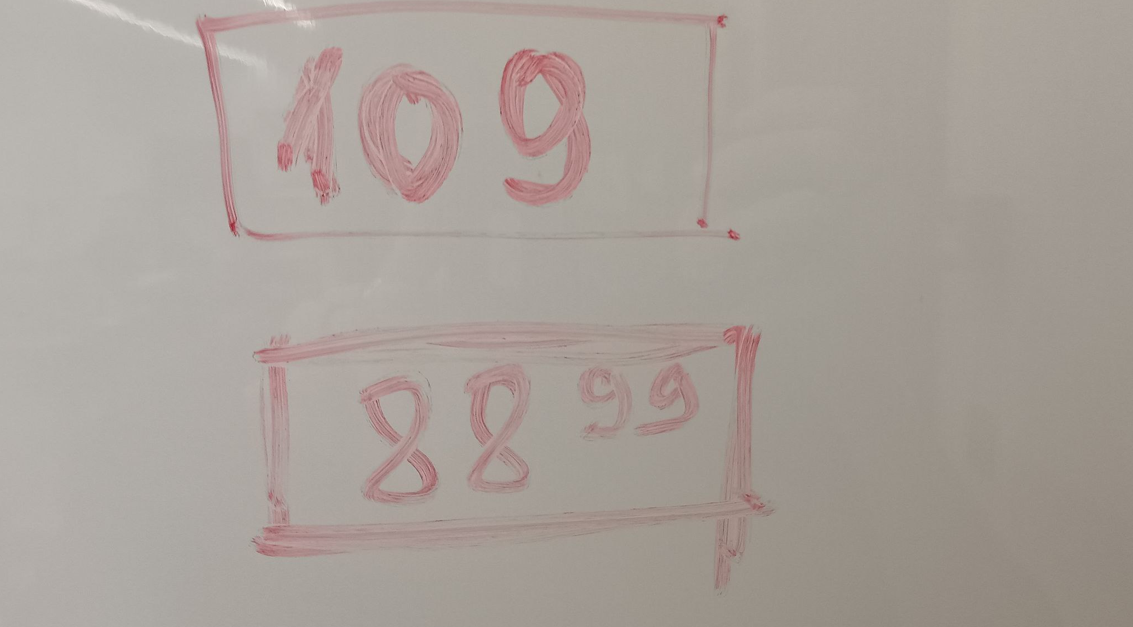 109
88 99